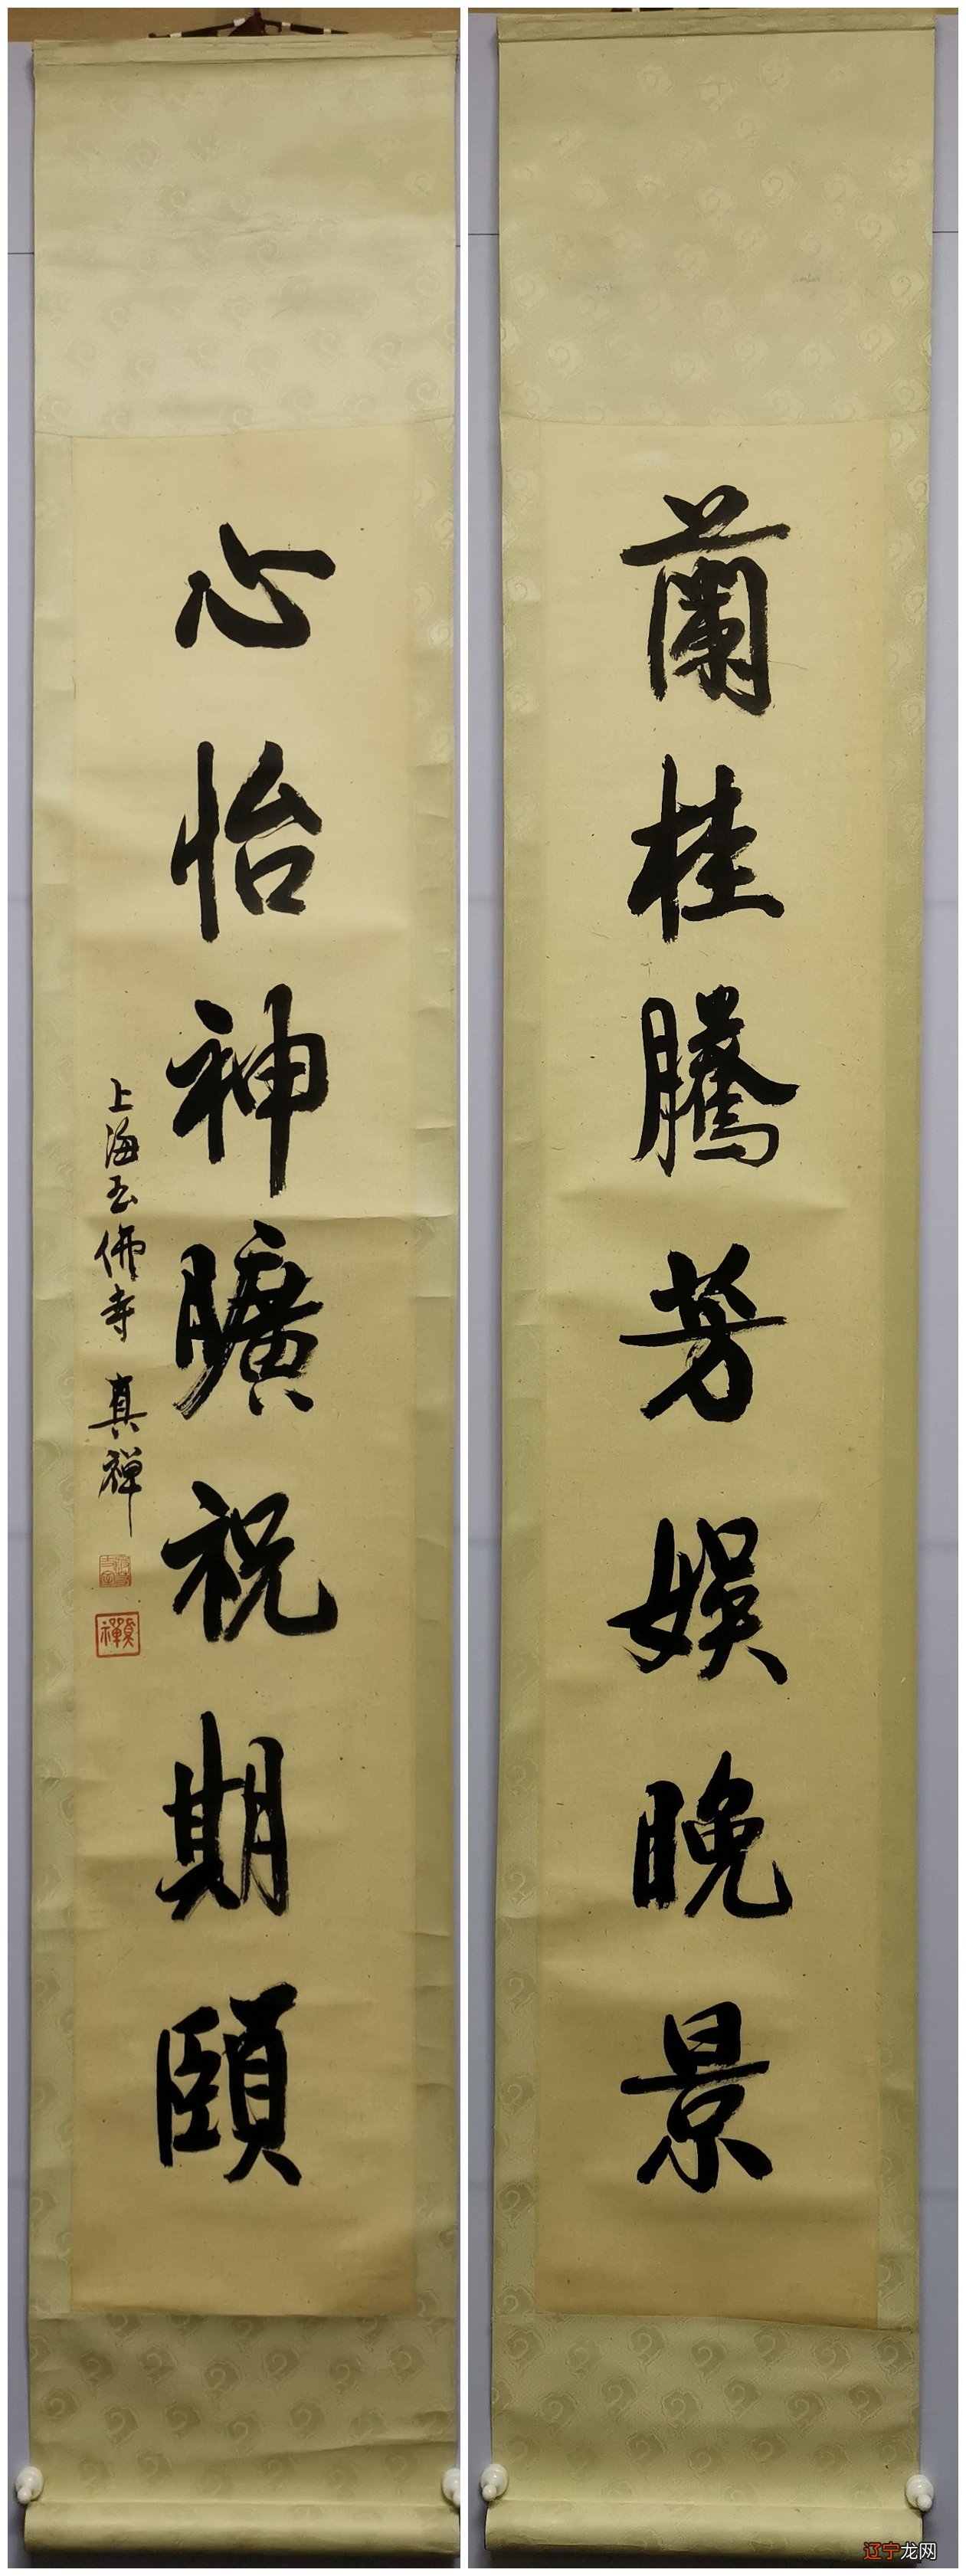 蘭桂騰芳娛晚景
心怡神曠祝期頤
上海玉佛寺 真禪
真禪
辽宁龙网